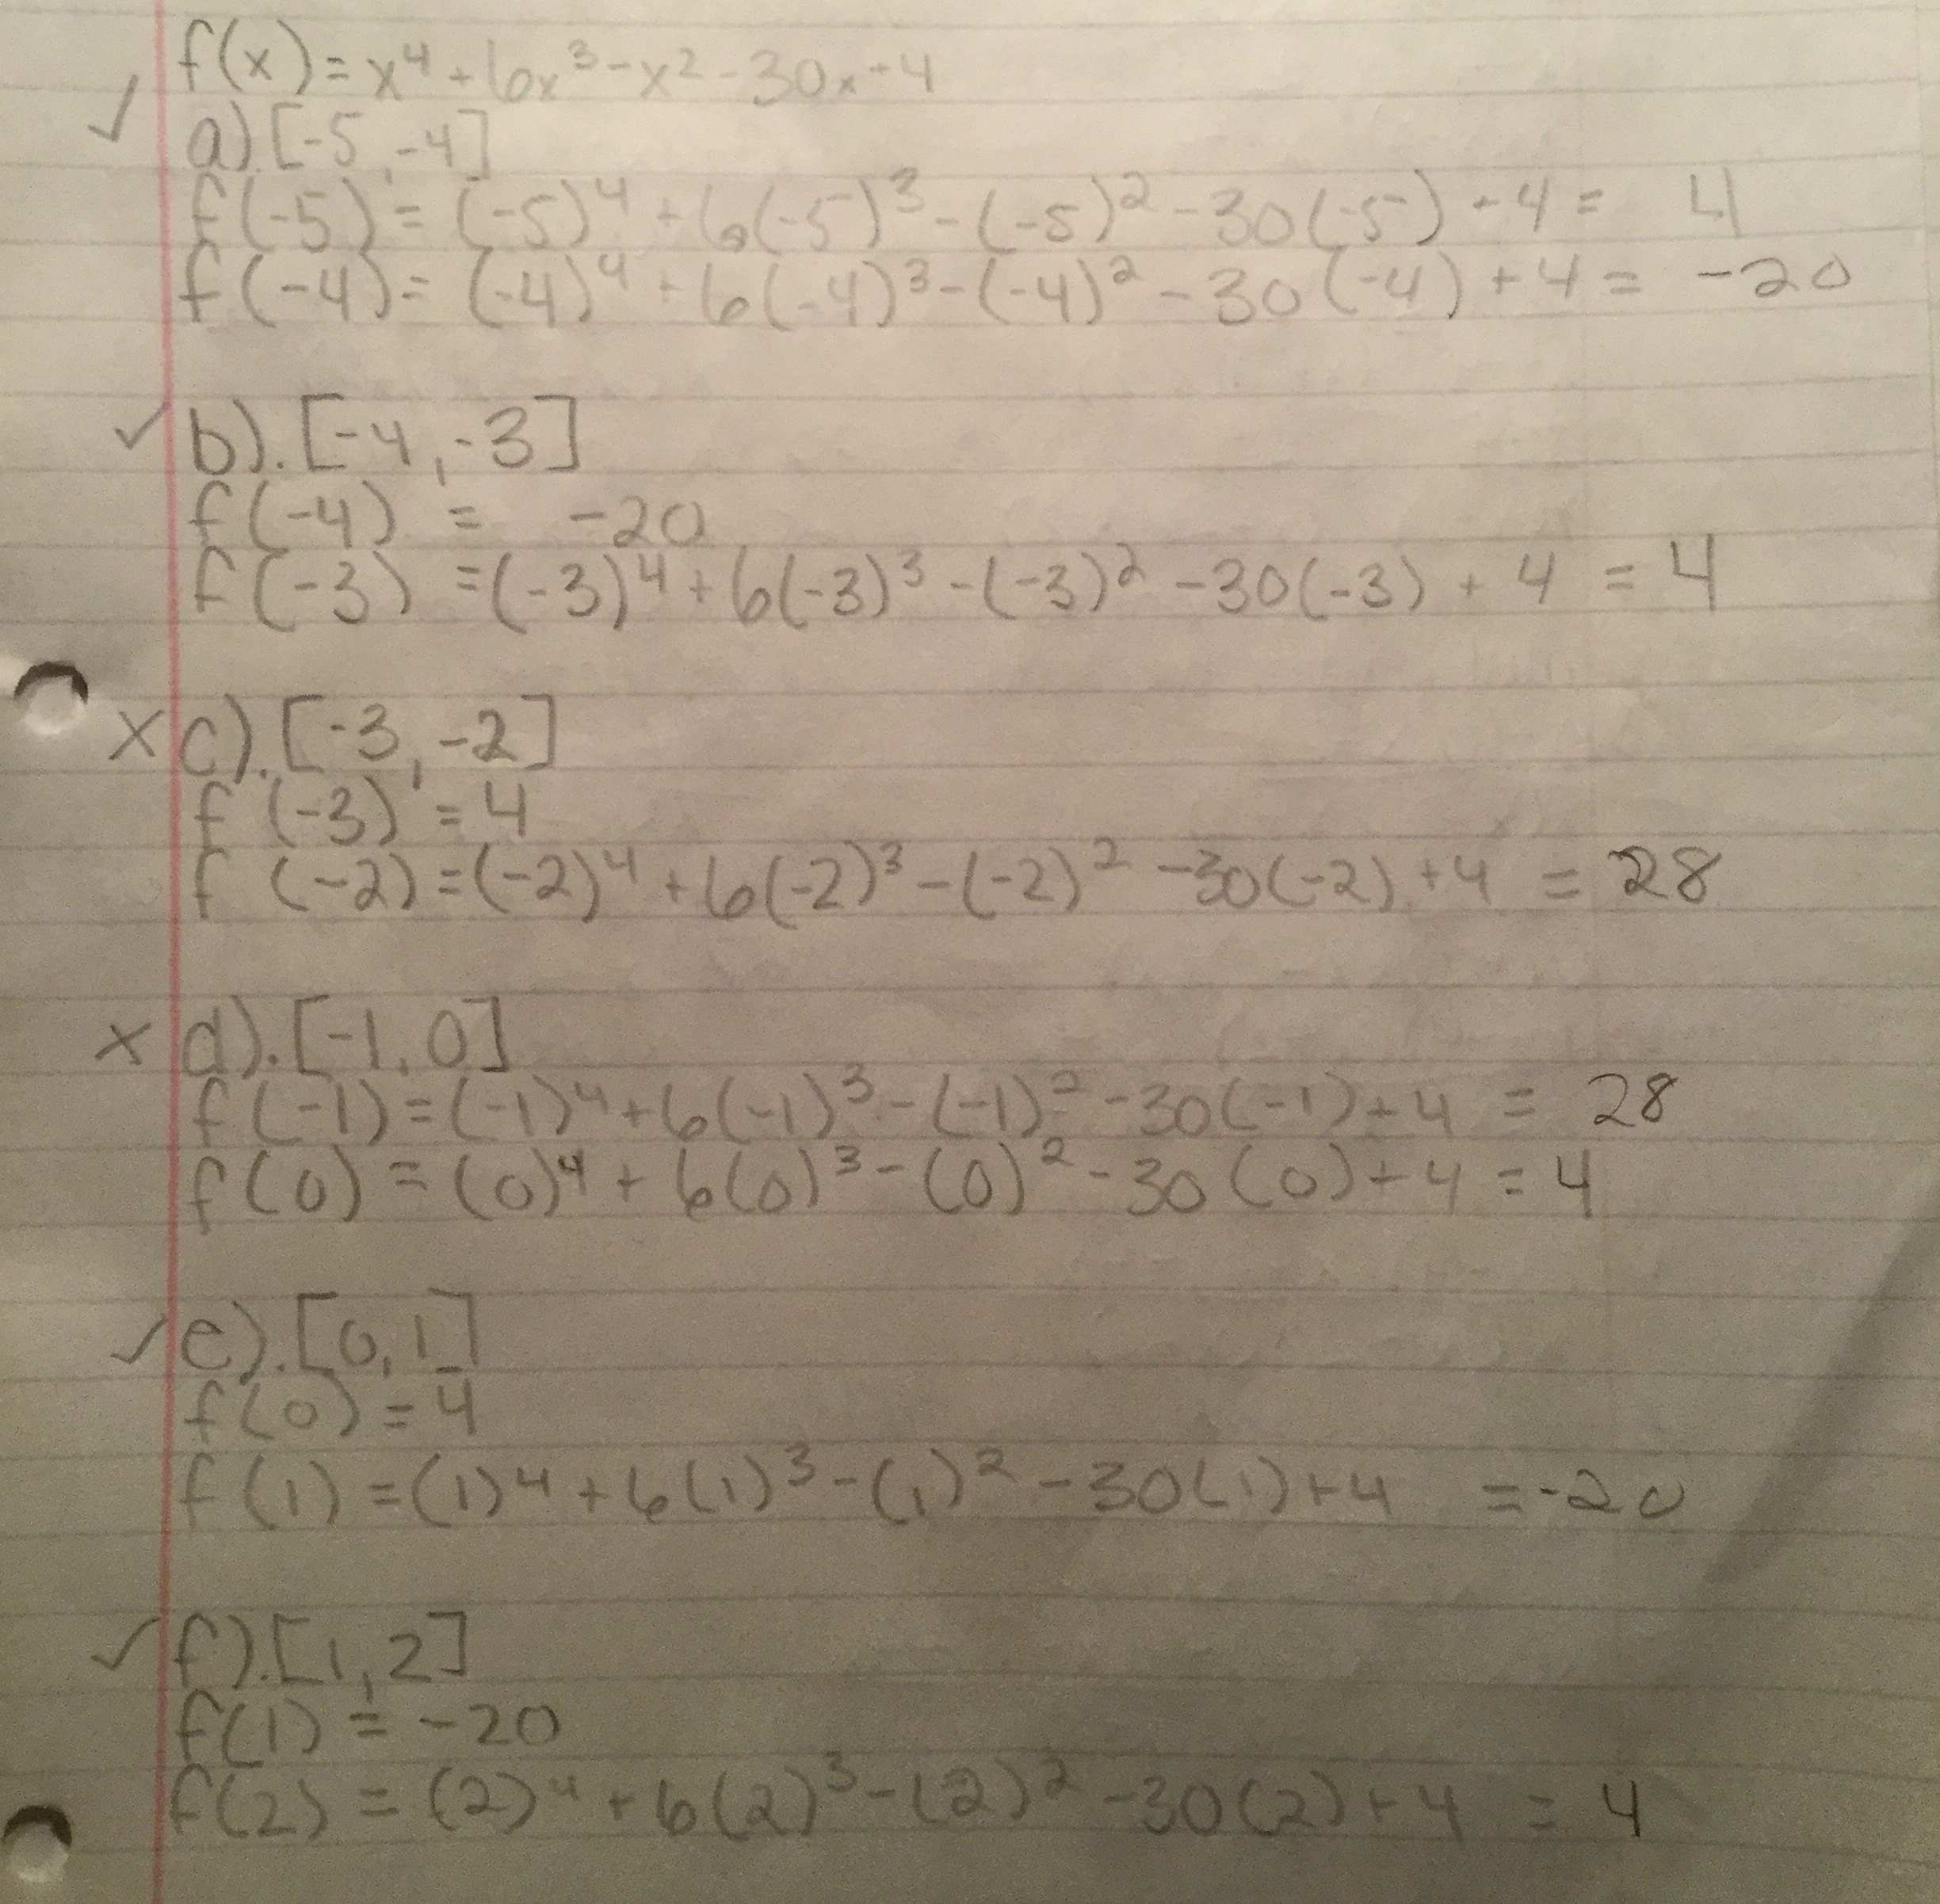 f(x) = x⁴ + 6x³ - x² - 30x + 4
✓ a). [-5, -4]
f(-5) = (-5)⁴ + 6(-5)³ - (-5)² - 30(-5) + 4 = 4
f(-4) = (-4)⁴ + 6(-4)³ - (-4)² - 30(-4) + 4 = -20
✓ b). [-4, -3]
f(-4) = -20
f(-3) = (-3)⁴ + 6(-3)³ - (-3)² - 30(-3) + 4 = 4
X c). [-3, -2]
f(-3) = 4
f(-2) = (-2)⁴ + 6(-2)³ - (-2)² - 30(-2) + 4 = 28
X d). [-1, 0]
f(-1) = (-1)⁴ + 6(-1)³ - (-1)² - 30(-1) + 4 = 28
f(0) = (0)⁴ + 6(0)³ - (0)² - 30(0) + 4 = 4
✓ e). [0, 1]
f(0) = 4
f(1) = (1)⁴ + 6(1)³ - (1)² - 30(1) + 4 = -20
✓ f). [1, 2]
f(1) = -20
f(2) = (2)⁴ + 6(2)³ - (2)² - 30(2) + 4 = 4